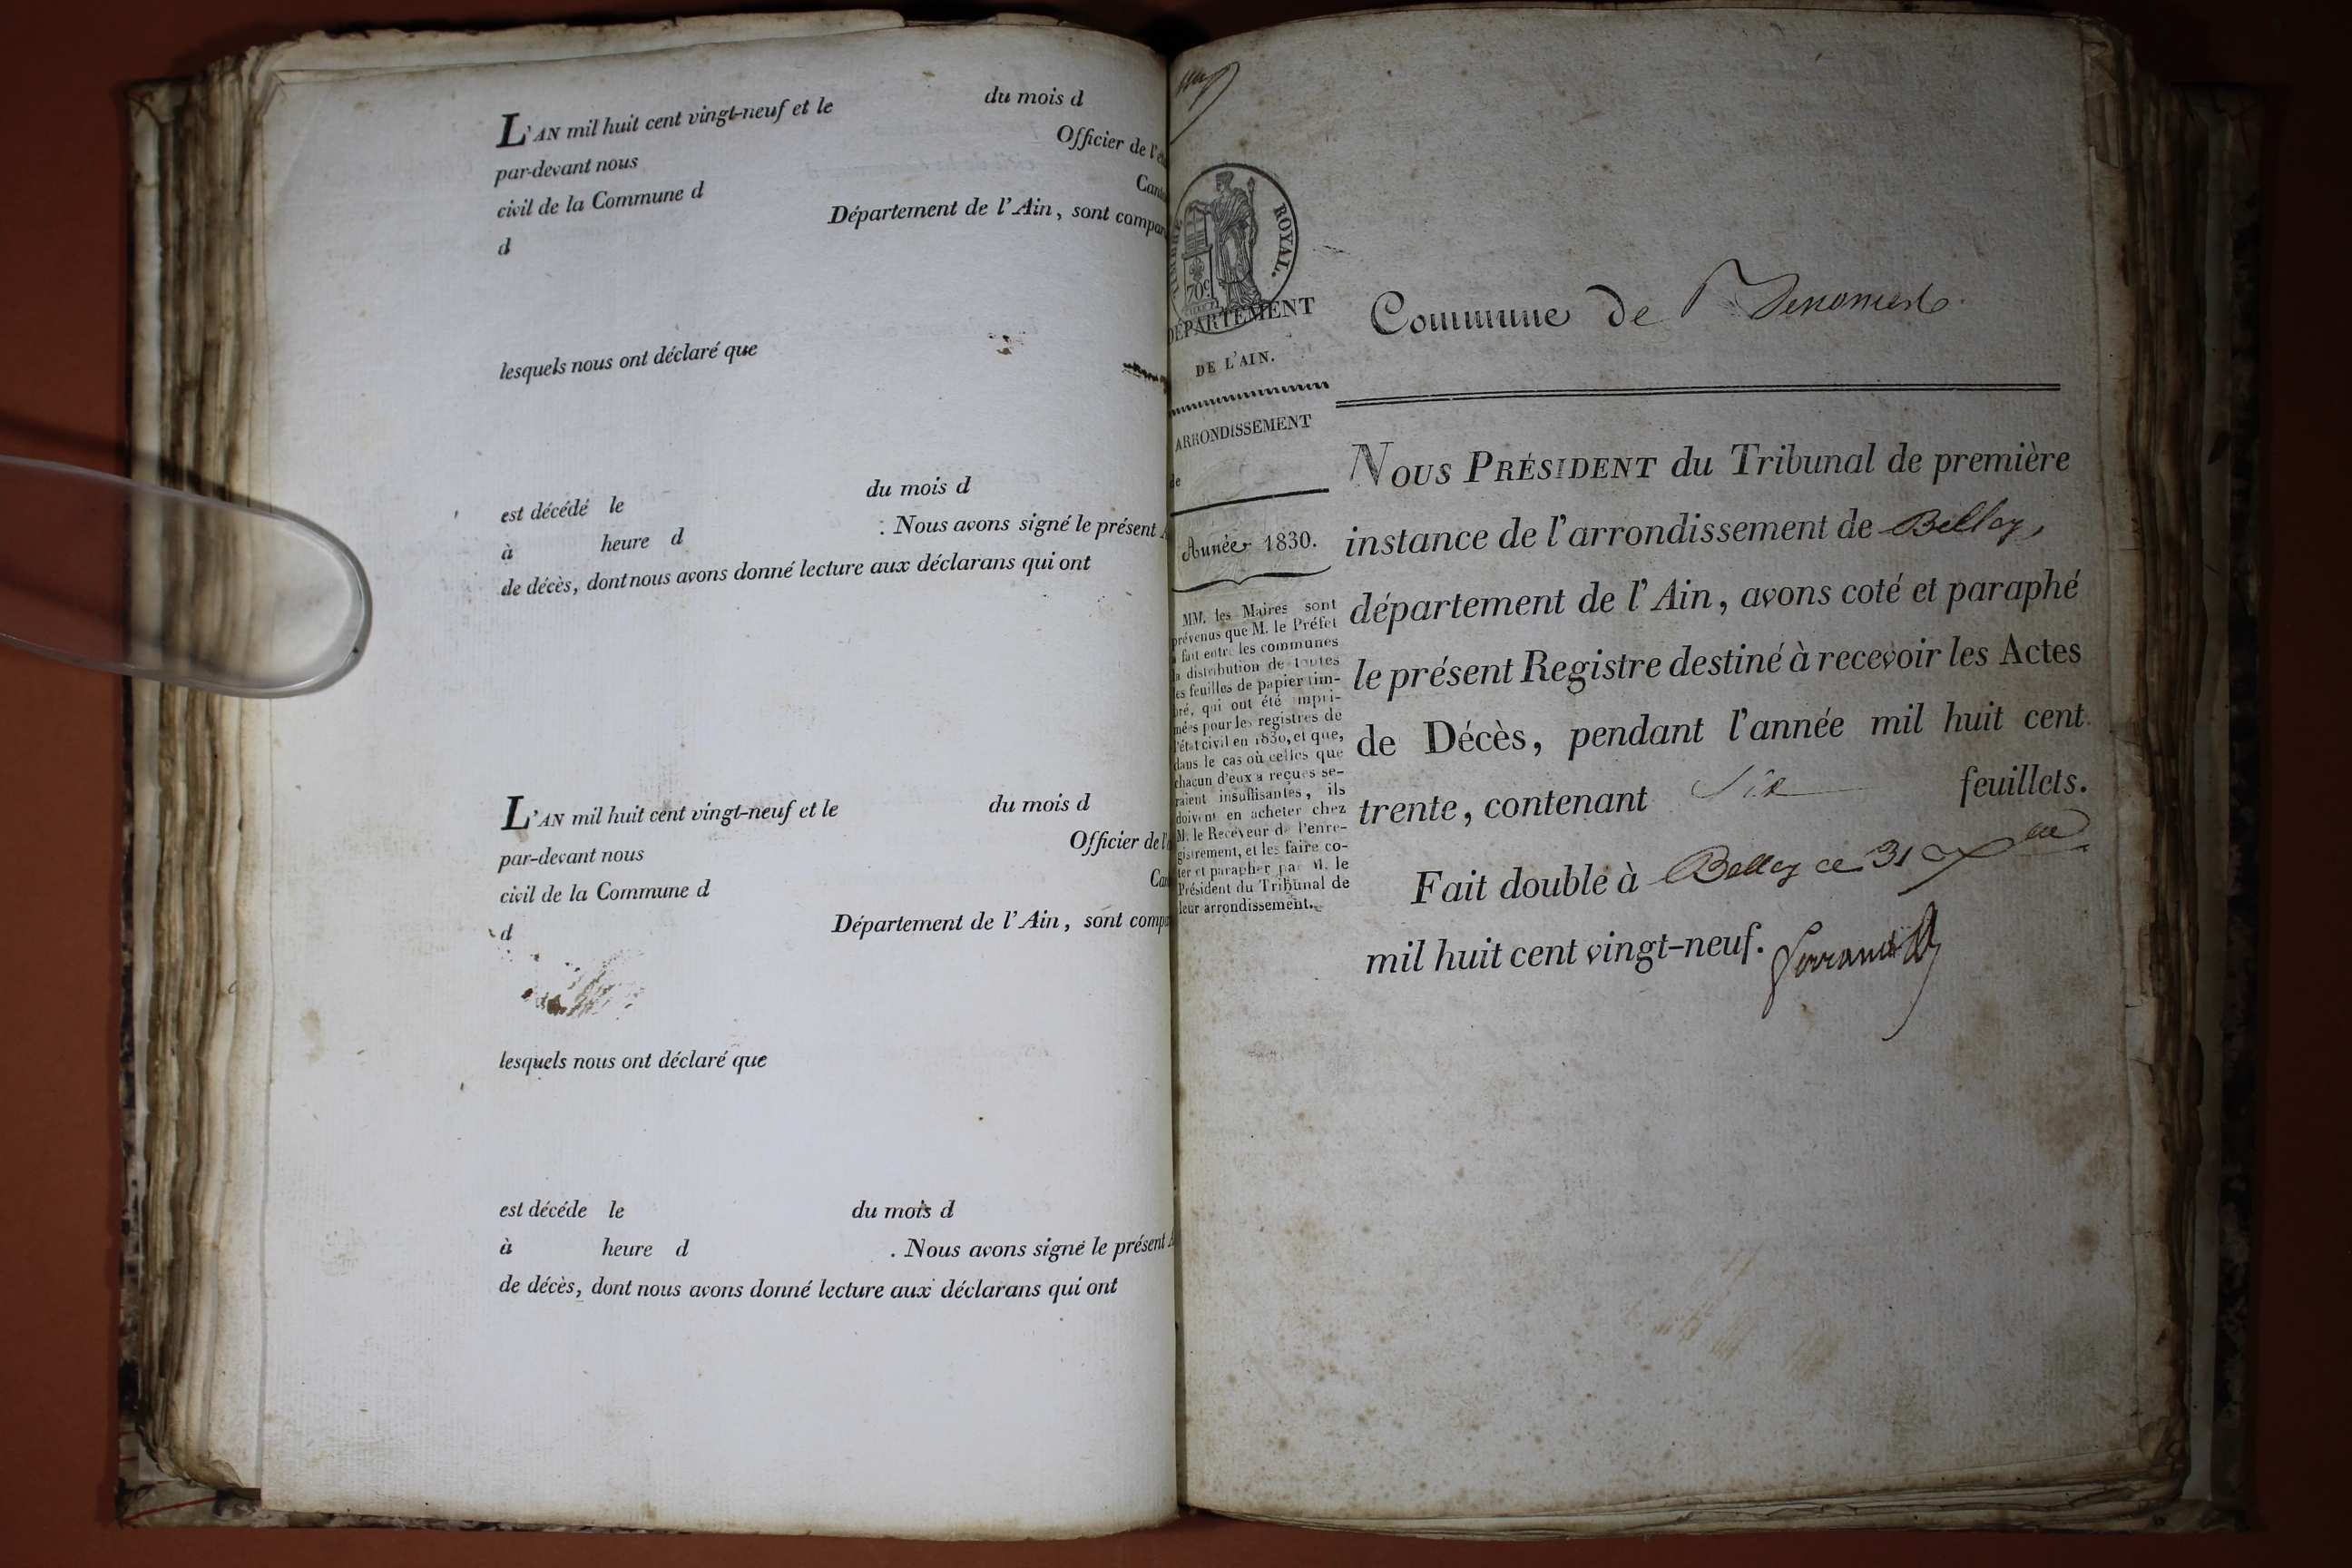 L'AN mil huit cent vingt-neuf et le du mois d
par-devant nous Officier de l'é
civil de la Commune d Cant
d Département de l'Ain, sont compar
lesquels nous ont déclaré que
est décédé le du mois d
à heure d . Nous avons signé le présent A
de décès, dont nous avons donné lecture aux déclarans qui ont
L'AN mil huit cent vingt-neuf et le du mois d
par-devant nous Officier de l'
civil de la Commune d Can
d Département de l'Ain, sont compa
lesquels nous ont déclaré que
est décédé le du mois d
à heure d . Nous avons signé le présent A
de décès, dont nous avons donné lecture aux déclarans qui ont
ROYAL.
70c
DÉPARTEMENT
DE L'AIN.
ARRONDISSEMENT
de
Année 1830.
MM. les Maires sont
prévenus que M. le Préfet
a fait entre les communes
la distribution de toutes
les feuilles de papier tim-
bré, qui ont été impri-
mées pour les registres de
l'état civil en 1830, et que,
dans le cas où celles que
chacun d'eux a reçues se-
raient insuffisantes, ils
doivent en acheter chez
M. le Receveur de l'enre-
gistrement, et les faire co-
ter et parapher par M. le
Président du Tribunal de
leur arrondissement.
Commune de
NOUS PRÉSIDENT du Tribunal de première
instance de l'arrondissement de Belley,
département de l'Ain, avons coté et paraphé
le présent Registre destiné à recevoir les Actes
de Décès, pendant l'année mil huit cent
trente, contenant Six feuillets.
Fait double à Belley ce 31 Xbre
mil huit cent vingt-neuf.